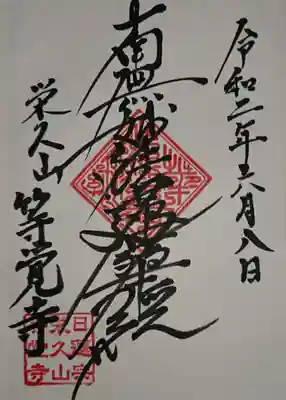 令和二年六月八日
南無妙法蓮華経
栄久山 等覚寺
日蓮宗
栄久山
等覚寺